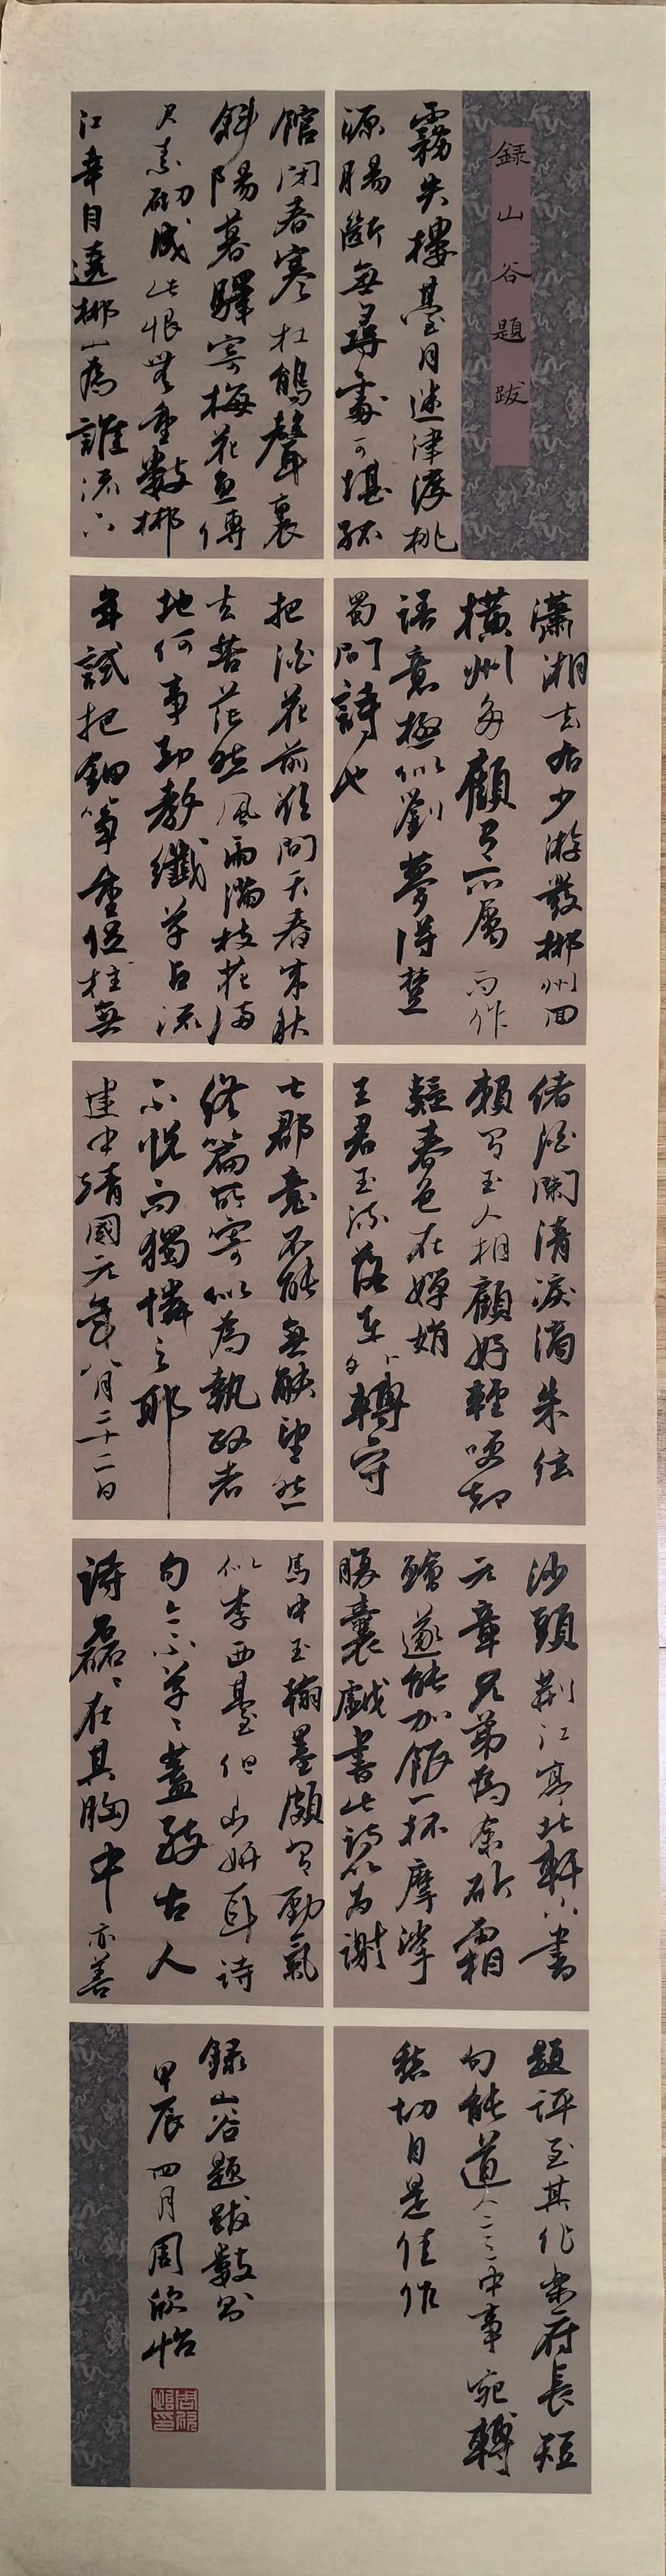 錄山谷題跋
霧失樓臺月迷津渡桃
源腸斷無尋處可堪孤
館閉春寒杜鵑聲裏
斜陽暮驛寄梅花魚傳
尺素砌成此恨無重數郴
江幸自遶郴山為誰流下
瀟湘去右少游發郴州回
橫州多顧有所屬而作
語意極似劉夢得楚
蜀間詩也
把酒花前欲問天春來秋
去苦茫然風雨滿枝花滿
地何事卻教纖草占流
年試把鈿箏重促柱無
緒酒闌清淚滴朱弦
賴有玉人相顧好輕嚬卻
疑春色在嬋娟
王君玉流落在外轉守
七郡意不能無觖望然
終篇所寄似為執政者
不悅而獨憐之耶
建中靖國元年八月二十二日
沙頭荊江亭北軒下書
元章兄弟為余斫霜
鱠遂能加飯一杯摩挲
腹囊戲書此詩以為謝
馬中玉翰墨頗有勁氣
似李西臺但少妍耳詩
句亦不草草蓋致古人
詩磊磊在其胸中亦善
題評至其作樂府長短
句能道人意中事宛轉
愁切自是佳作
錄山谷題跋數則
甲辰四月周欣怡
周欣怡印